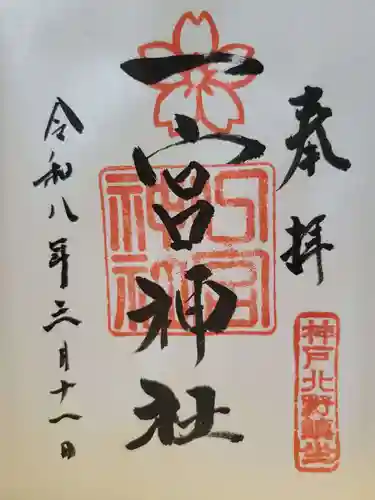 奉拝
神戸北野鎮坐
一宮神社
一宮神社
令和八年三月十一日